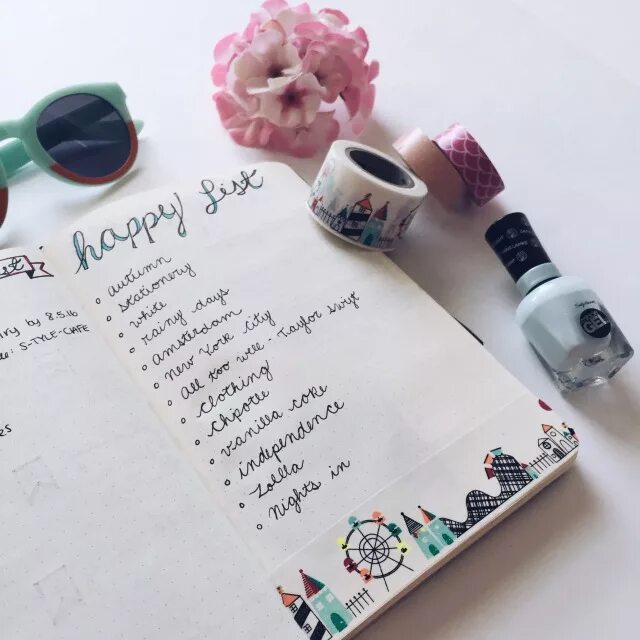 happy List
autumn
stationery
white
rainy days
amsterdam
new york city
all too well - Taylor Swift
clothing
chipotle
vanilla coke
independence
Zoella
nights in
by 8.5.16
S-TYLE-CAFE
GEL